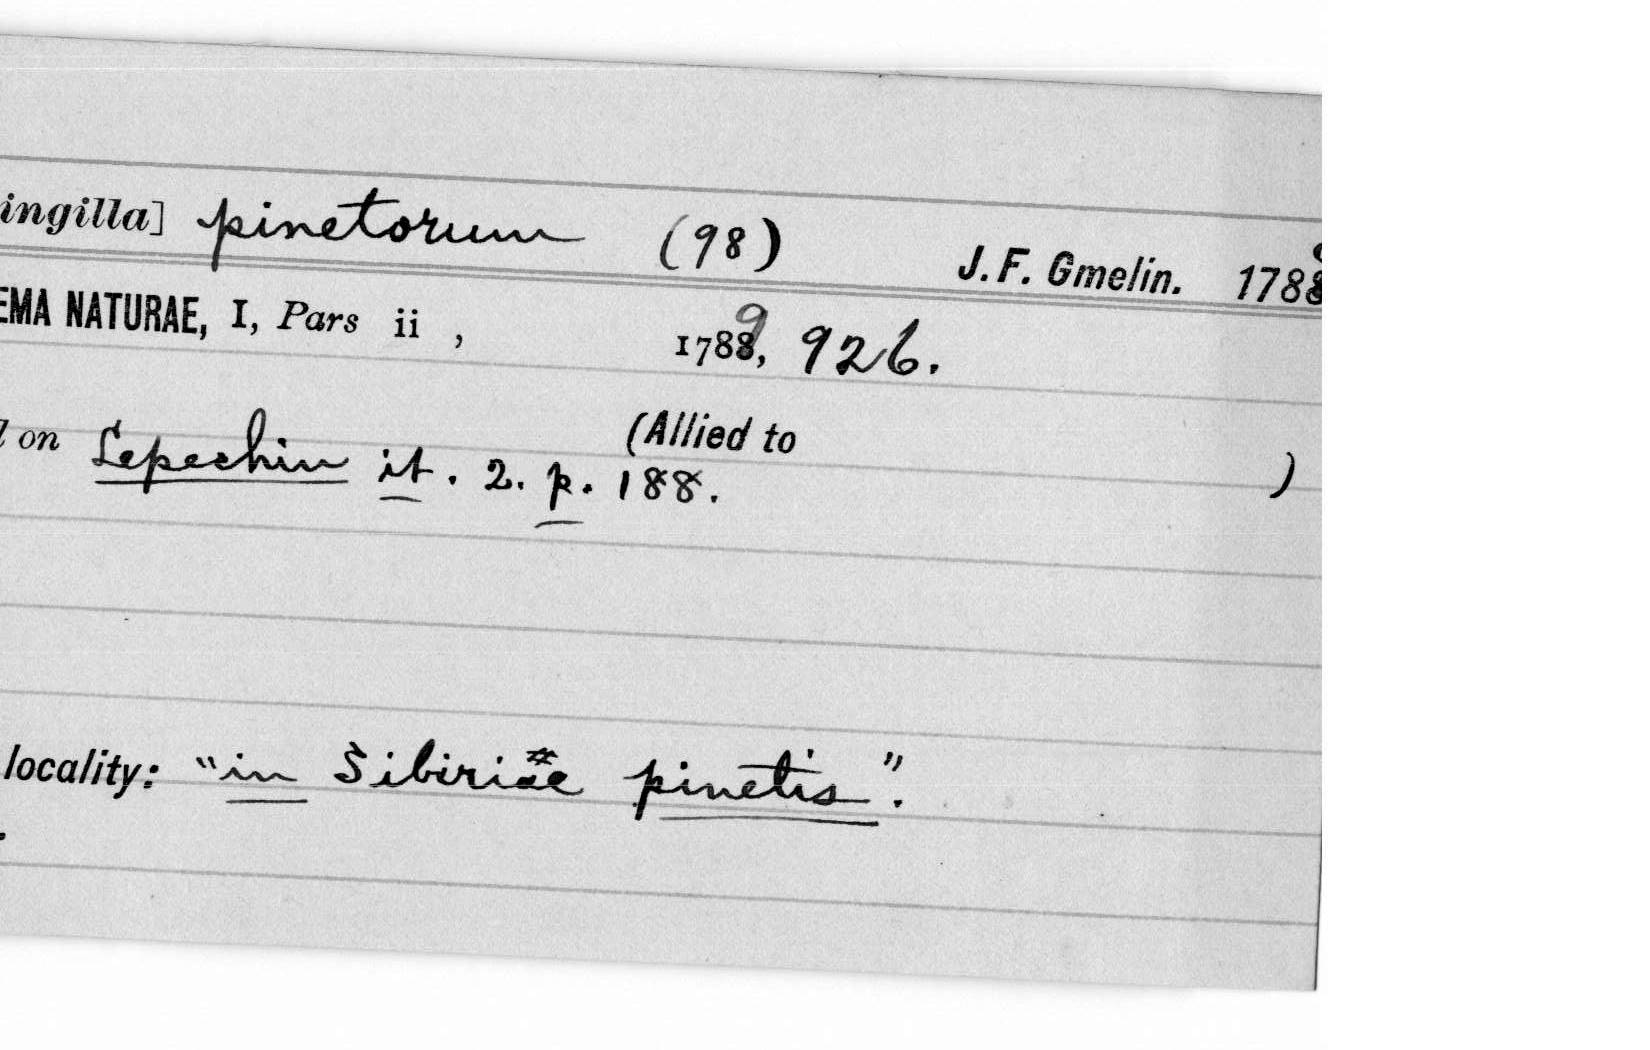 ingilla] pinetorum (98) J. F. Gmelin. 1788
EMA NATURAE, I, Pars ii , 1789, 926.
(Allied to )
on Lepechin it. 2. p. 188.
locality: "in Sibiriae pinetis".